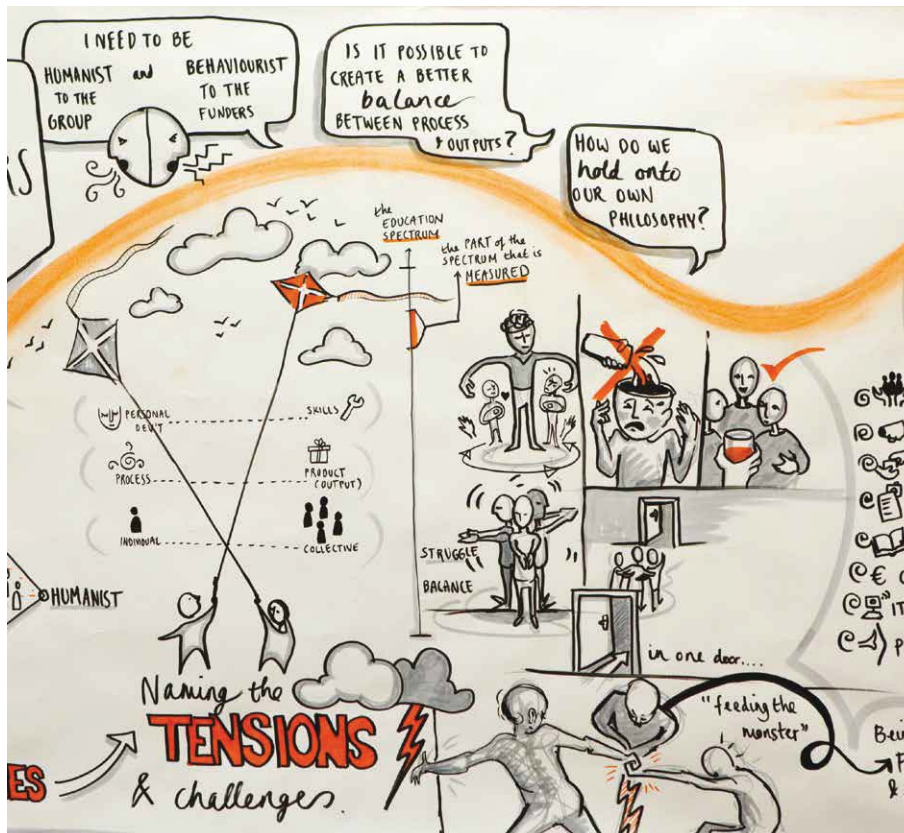 I NEED TO BE
HUMANIST and BEHAVIOURIST
TO THE TO THE
GROUP FUNDERS
IS IT POSSIBLE TO
CREATE A BETTER
balance
BETWEEN PROCESS
& OUTPUTS?
HOW DO WE
hold onto
OUR OWN
PHILOSOPHY?
the
EDUCATION
SPECTRUM
the PART of the
SPECTRUM that is
MEASURED
PERSONAL
DEV'T
SKILLS
PROCESS
PRODUCT
(OUTPUT)
INDIVIDUAL
COLLECTIVE
STRUGGLE
BALANCE
HUMANIST
in one door....
Naming the
TENSIONS
& challenges.
"feeding the
monster"
ES
€
IT
P
Bei
&